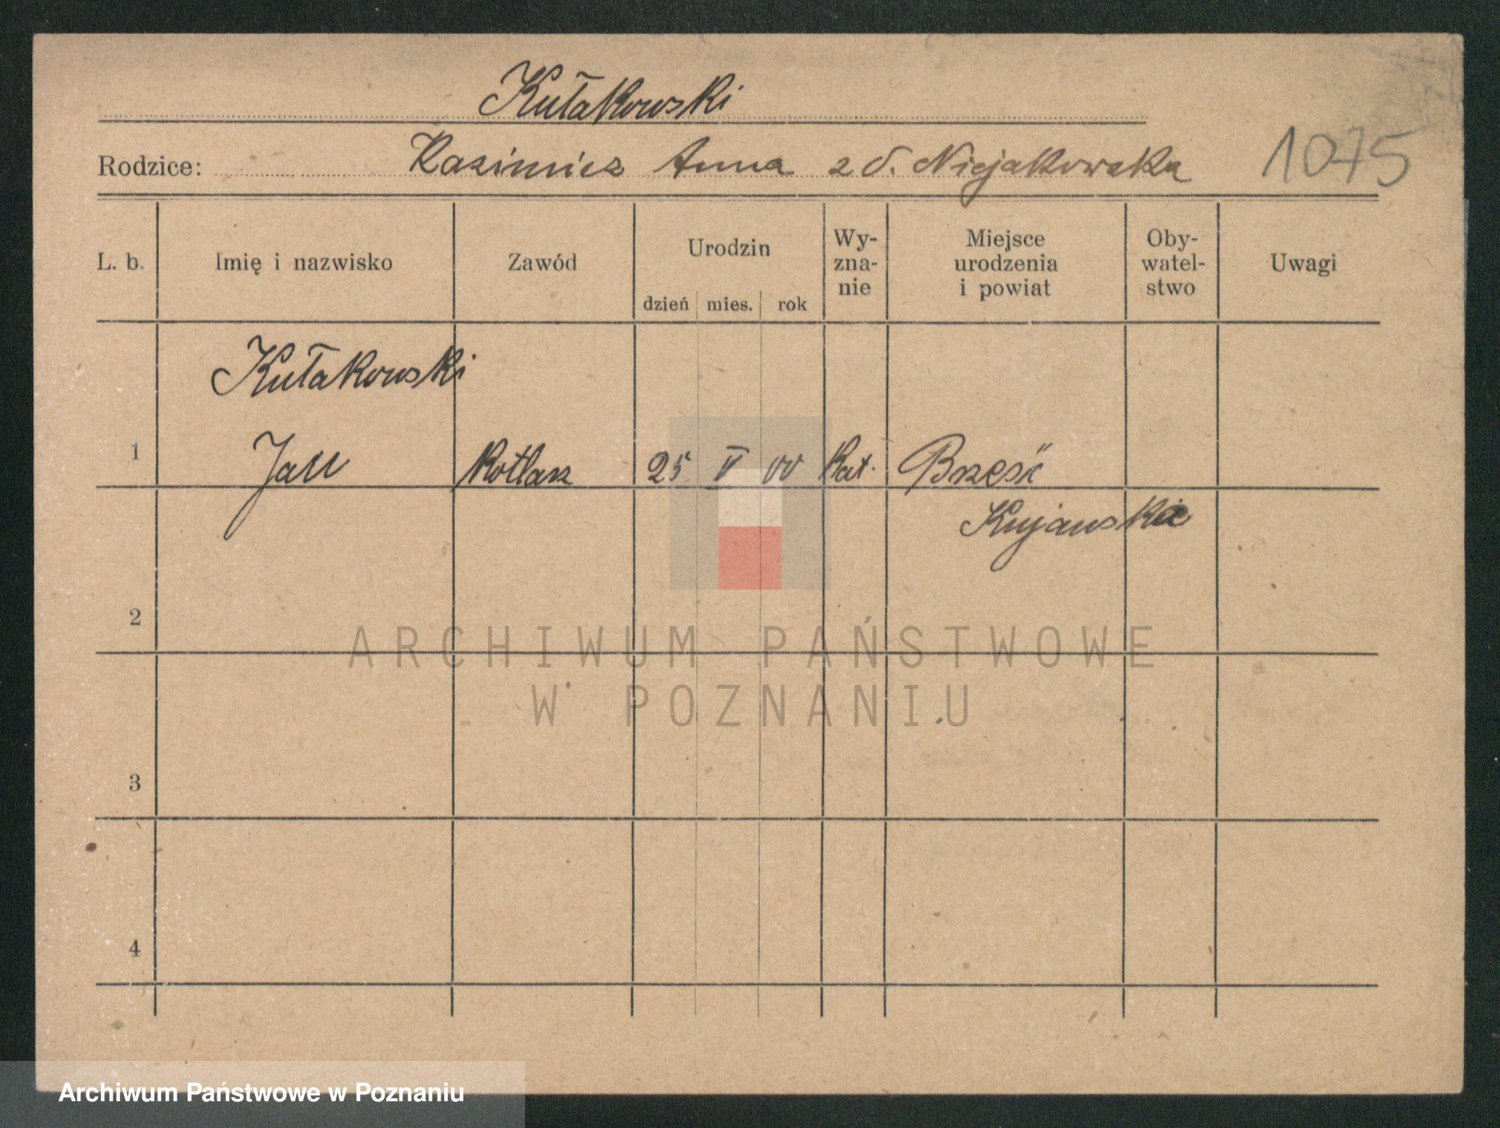 Kułakowski
Rodzice: Kazimierz Anna z d. Niejakowska 1075
L. b. Imię i nazwisko Zawód Urodzin dzień mies. rok Wy-zna-nie Miejsce urodzenia i powiat Oby-watel-stwo Uwagi
Kułakowski
1 Jan Kotlarz 25 V 00 Kat. Brześć
Kujawski
2
ARCHIWUM PAŃSTWOWE
W POZNANIU
3
4
Archiwum Państwowe w Poznaniu